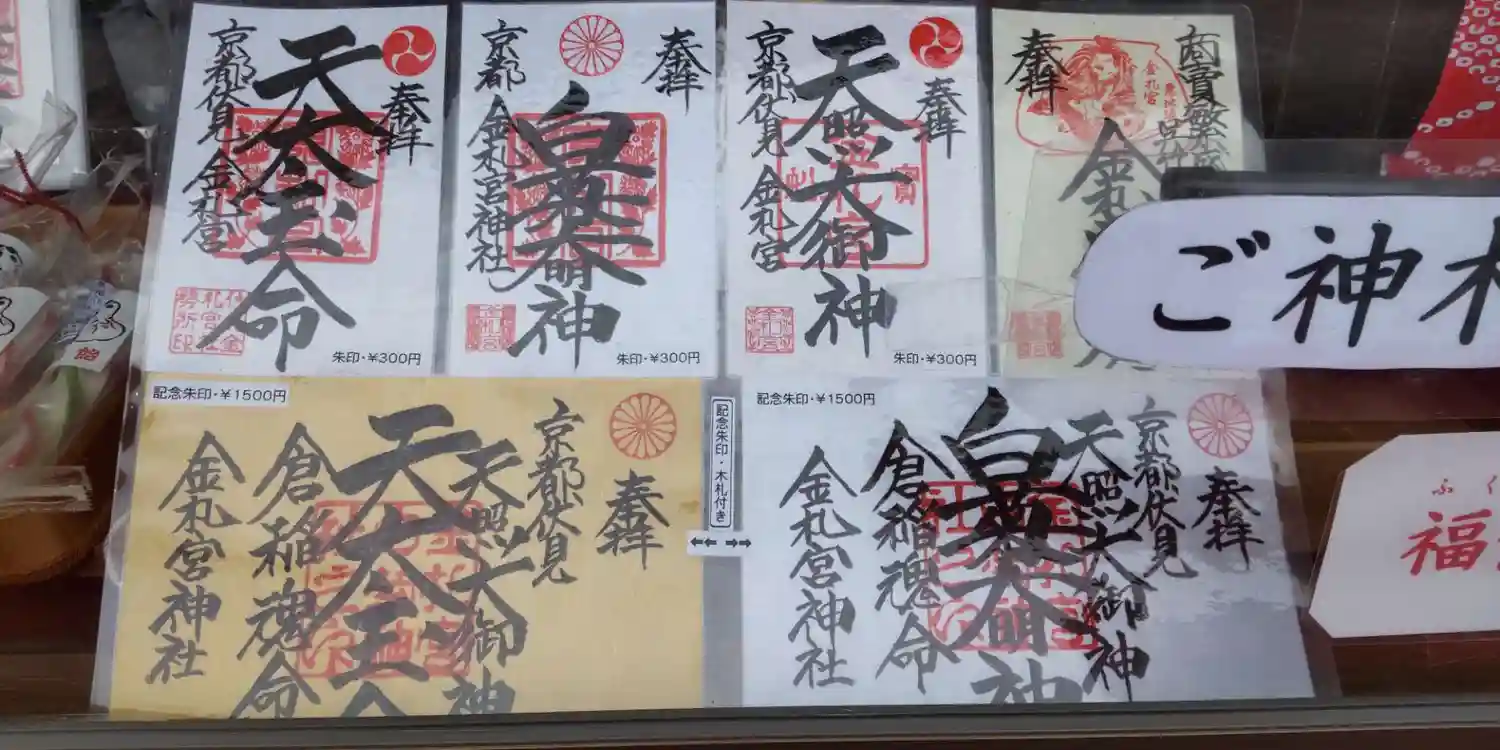 奉拝
天太玉命
京都伏見 金札宮
朱印・¥300円
奉拝
白菊大明神
京都 金札宮神社
朱印・¥300円
奉拝
天照大御神
京都伏見 金札宮
朱印・¥300円
商売繁盛
奉拝
金札宮
金札
ご神札
記念朱印・¥1500円
奉拝
京都伏見
天照大御神
天太玉命
倉稲魂命
金札宮神社
記念朱印・木札付き
←← →→
記念朱印・¥1500円
奉拝
京都伏見
天照大御神
白菊大明神
倉稲魂命
金札宮神社
ふく
福
飴